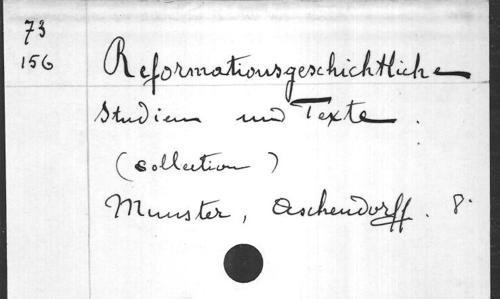 73
156
Reformationsgeschichtliche
Studien und Texte.
(collection)
Munster, Aschendorff. 8°